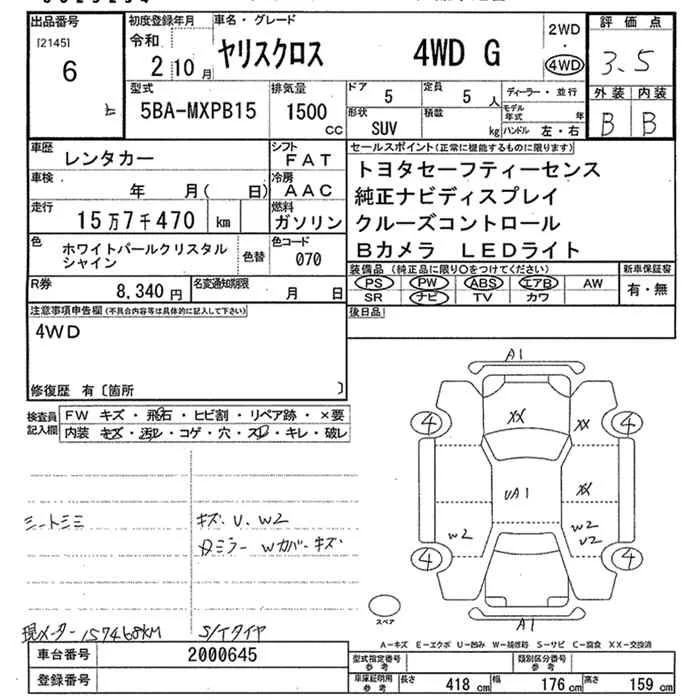 出品番号
[2145]
6
初度登録年月
令和
2 10月
車名・グレード
ヤリスクロス 4WD G
2WD
・
4WD
評価点
3.5
外装 内装
B B
型式
5BA-MXPB15
排気量
1500 CC
ドア
5
定員
5 人
形状
SUV
積載
kg
ディーラー・並行
モデル年式 年
ハンドル 左・右
車歴
レンタカー
シフト
FAT
車検
年 月( 日)
冷房
AAC
走行
15万7千470 km
燃料
ガソリン
色
ホワイトパールクリスタル
シャイン
色替
色コード
070
R券
8,340円
名変通知期限
月 日
セールスポイント(正常に機能するものに限ります)
トヨタセーフティーセンス
純正ナビディスプレイ
クルーズコントロール
Bカメラ LEDライト
装備品(純正品に限り○をつけてください)
PS PW ABS エアB AW
SR ナビ TV カワ
新車保証書
有・無
後日品
注意事項申告欄(不具合内容等は具体的に記入して下さい)
4WD
修復歴 有〔箇所 〕
検査員記入欄
FW キズ・飛石・ヒビ割・リペア跡・×要
内装 キズ・汚レ・コゲ・穴・スレ・キレ・破レ
シートミミ
キズ、U、W2
Wカバーキズ
現メーター157468KM
S/Tタイヤ
A1
4
XX
XX
4
UA1
XX
W2
W2
U2
4
4
A1
スペア
A-キズ E-エクボ U-凹み W-補修跡 S-サビ C-腐食 XX-交換済
車台番号
2000645
登録番号
型式指定番号
参考
類別区分番号
参考
車庫証明用
参考
長さ 418 cm
幅 176 cm
高さ 159 cm